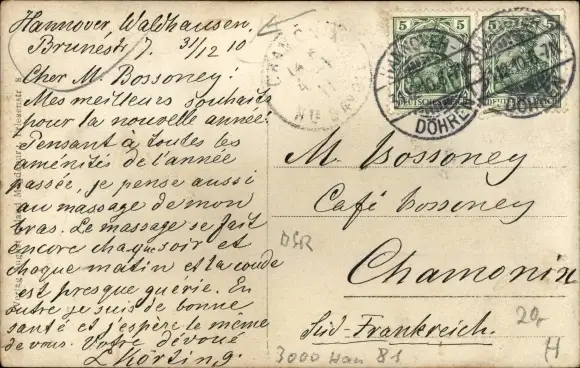 Hannover, Waldhausen,
Brunestr 7. 31/12 10
Cher M. Bossoney!
Mes meilleurs souhaits
pour la nouvelle année.
Pensant à toutes les
aménités de l'année
passée, je pense aussi
au massage de mon
bras. Le massage se fait
encore chaque soir et
chaque matin et la coude
est presque guerie. En
outre je suis de bonne
santé et j'espère le même
de vous. Votre dévoué
L Körting.
5 5
5 5
HANNOVER-
DÖHREN
HANNOVER-
DÖHREN
DEUTSCHES REICH
M. Bossoney
Café Bossoney
Chamonix
Süd-Frankreich.
DSR
20,-
3000 Han 81
H